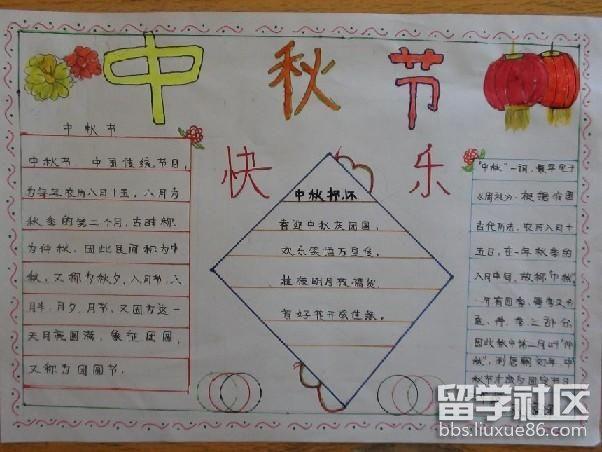 中秋节
快乐
中秋节
中秋节 中国传统节日,
为每年农历八月十五, 八月为
秋季的第二个月, 古时称
为仲秋, 因此民间称为中
秋, 又称为秋夕, 八月节, 八
月半, 月夕, 月节, 又因为这一
天月亮圆满, 象征团圆,
又称为团圆节.
中秋抒怀
喜迎中秋庆团圆,
欢乐笑语
明月
"中秋"一词, 最早见于
《周礼》. 根据我国
古代历法, 农历八月十
五日, 在一年秋季的
八月中旬, 故称"中秋"
一年有四季, 每季又分
孟、仲、季三部分,
因此秋中第二月叫"仲
秋", 到唐朝初年, 中
秋节才成为固定节日
留学社区
bbs.liuxue86.com